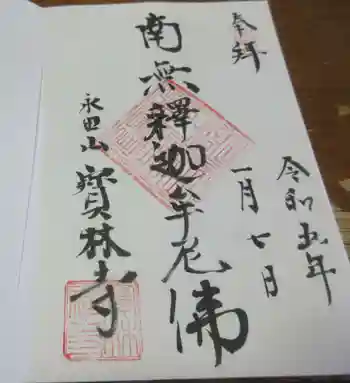 奉拝
令和五年
一月七日
南無釋迦牟尼佛
永田山
寳林寺